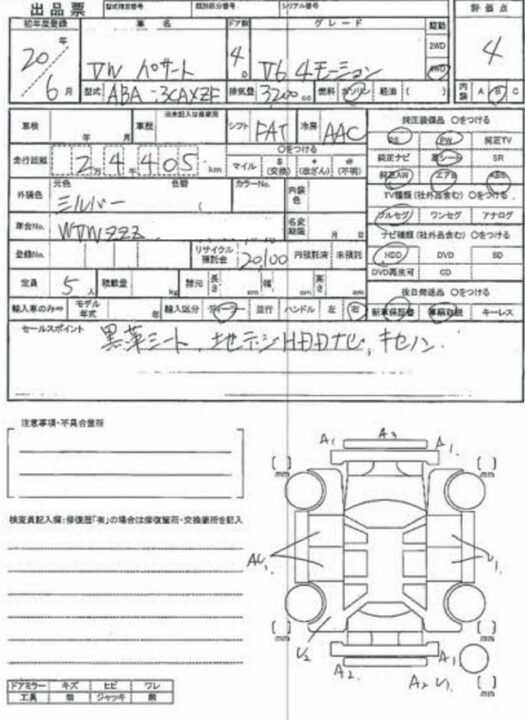 出品票 型式指定番号 類別区分番号 シリアル番号 評価点
初年度登録 車名 ドア数 グレード 駆動
20年 VW パサート 4D V6 4モーション 2WD 4WD 4
6月 型式 ABA-3CAXZF 排気量 3200cc 燃料 ガソリン 軽油 ( ) 内装 A B C
車検 年 月 車歴 シフト FAT 冷房 AAC 純正装備品 ○をつける
PS PW 純正TV
走行距離 2万4405km ○をつける マイル $(交換) *(改ざん) #(不明) 純正ナビ 革シート SR
純正AW エアB ABS
外装色 元色 シルバー 色替 ( カラーNo. 内装色 TV種類(社外品含む)○をつける
フルセグ ワンセグ アナログ
車台No. WVWZZZ 名変期限 月 日 ナビ種類(社外品含む)○をつける
登録No. リサイクル預託金 20100円預託済 未預託 HDD DVD SD
DVD再生可 CD
定員 5人 積載量 kg 諸元 長さ cm 幅 cm 高さ cm 後日発送品 ○をつける
輸入車のみ⇒ モデル年式 年 輸入区分 ディーラー 並行 ハンドル 左 右 新車保証書 車輌取説 キーレス
セールスポイント 黒革シート、地デジHDDナビ、キセノン
注意事項・不具合箇所
検査員記入欄:修復歴「有」の場合は修復箇所・交換箇所を記入
A1 A3 A1
[ ]mm [ ]mm
AU1 U1
[ ]mm [ ]mm
U2 A2 A1
A2 U1
ドアミラー キズ ヒビ ワレ
工具 ジャッキ 無